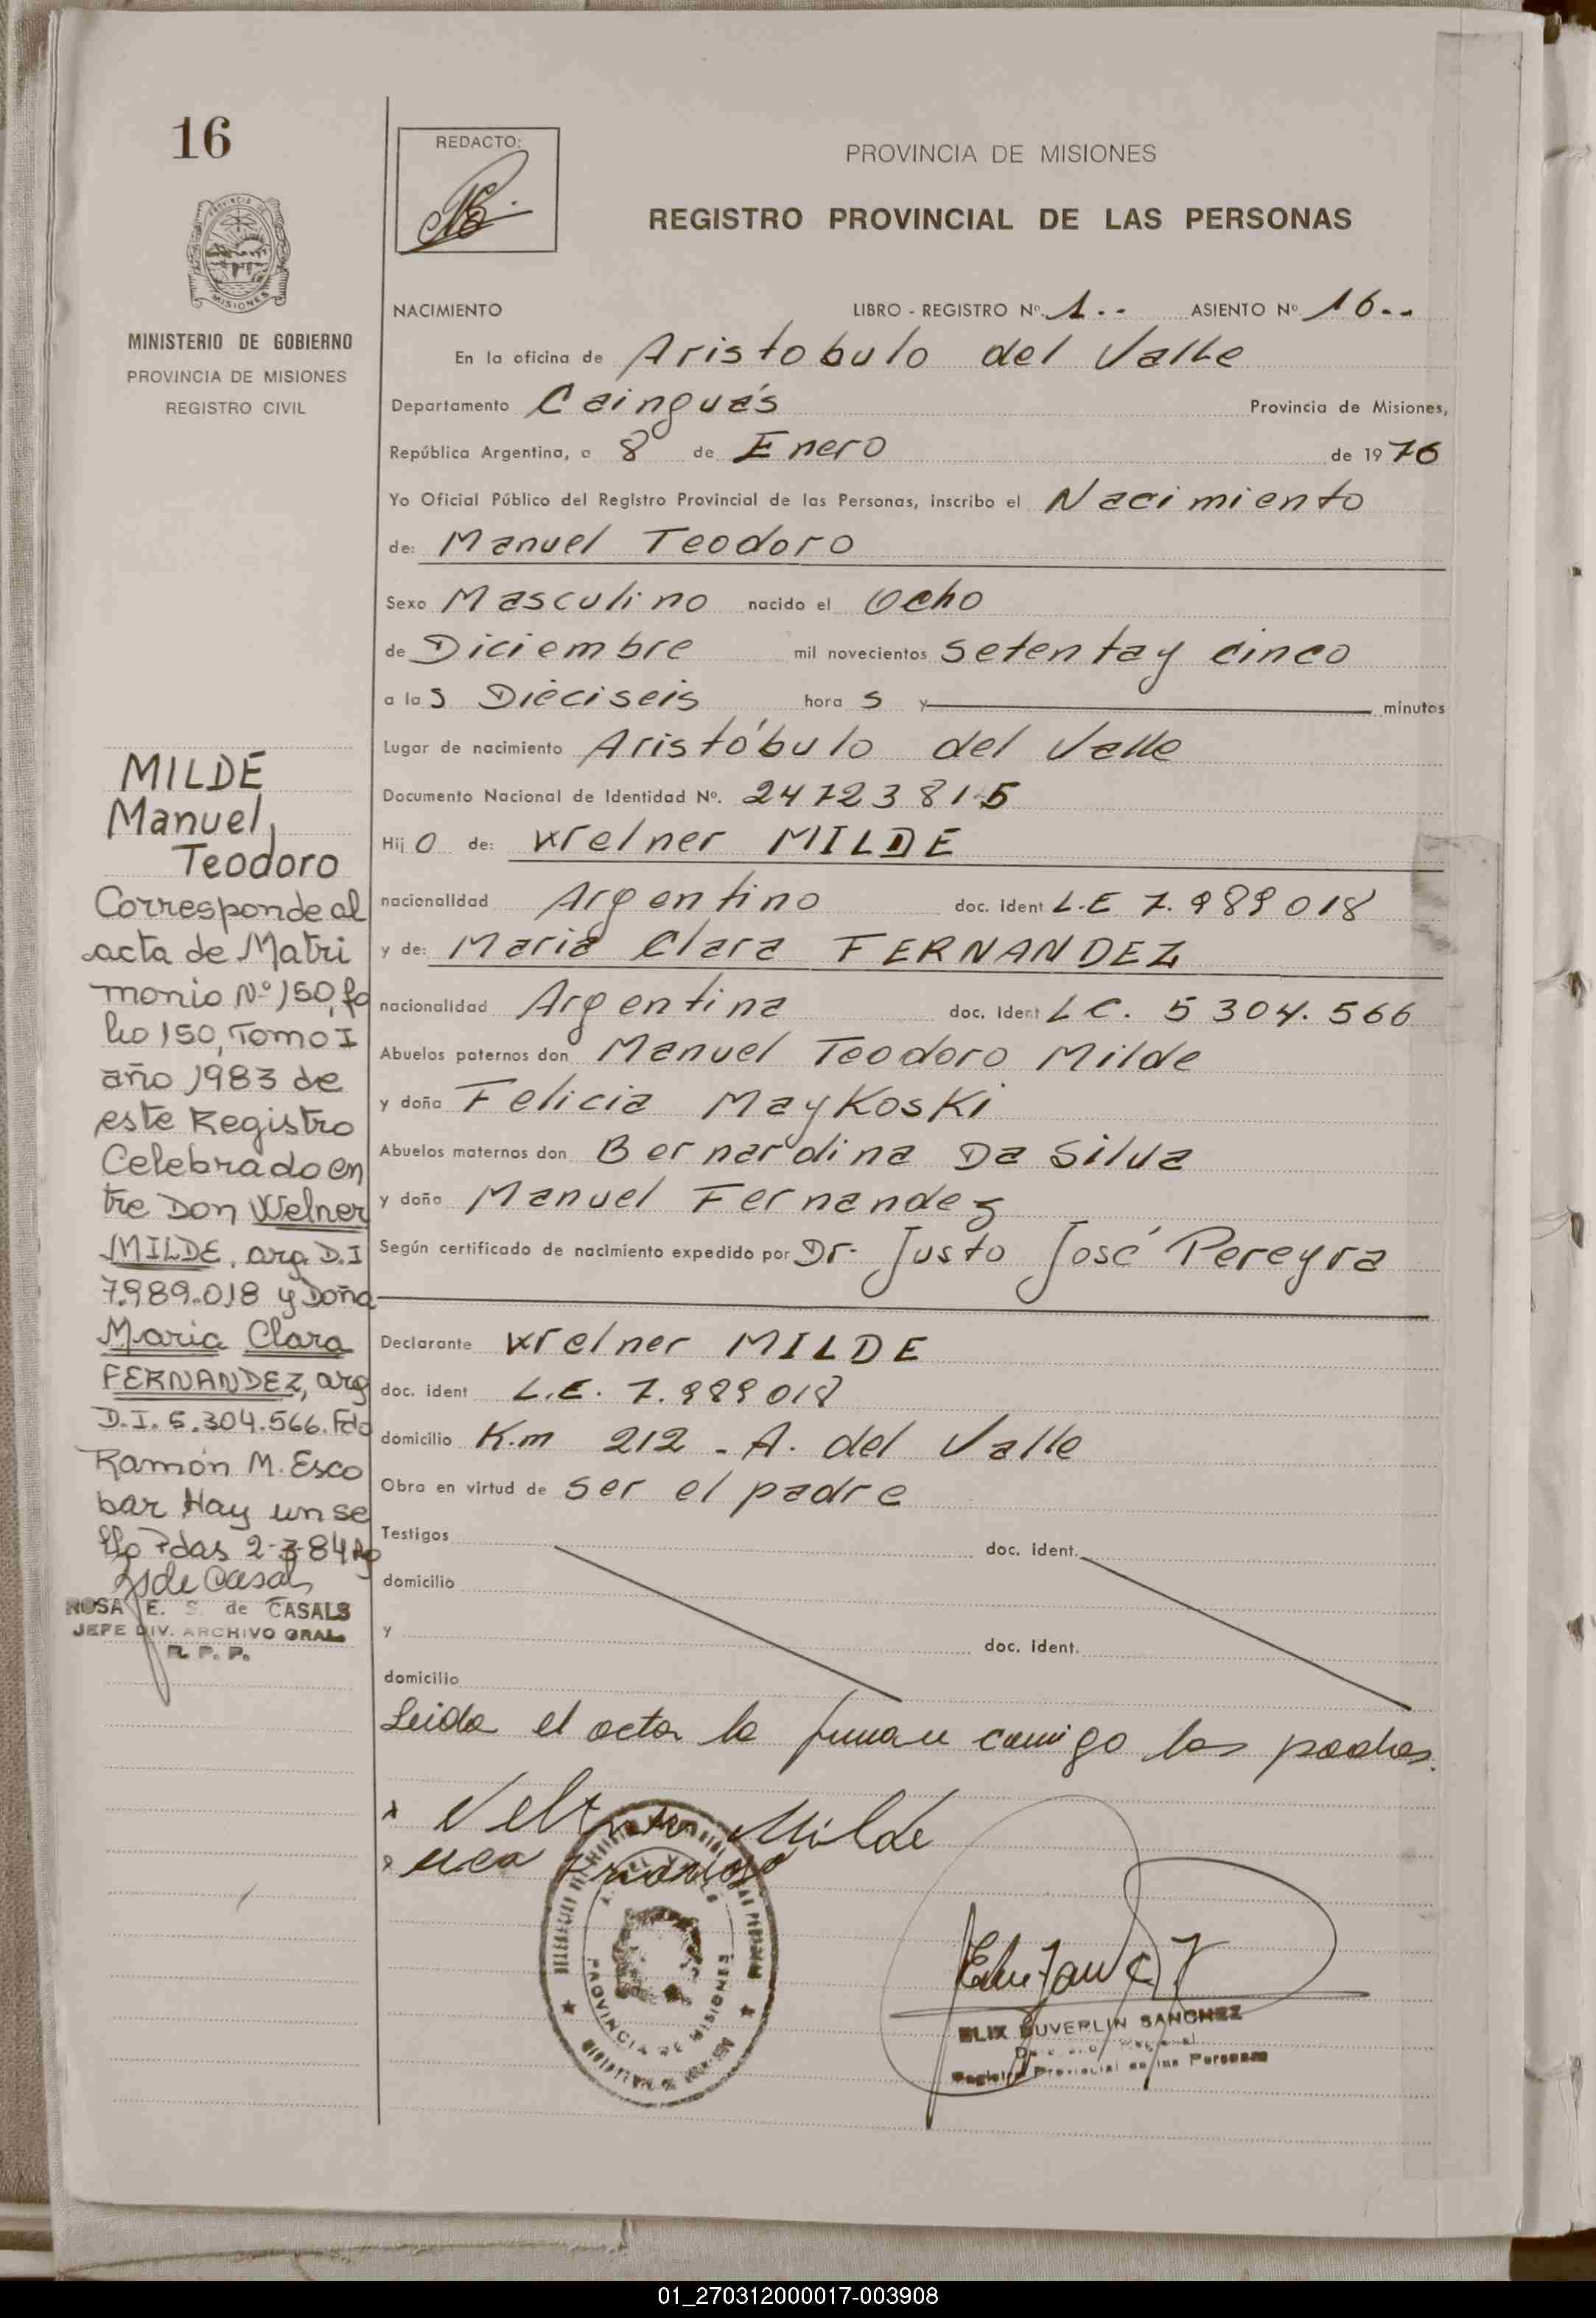 16
REDACTO:
PROVINCIA DE MISIONES
REGISTRO PROVINCIAL DE LAS PERSONAS
PROVINCIA DE
MISIONES
MINISTERIO DE GOBIERNO
PROVINCIA DE MISIONES
REGISTRO CIVIL
NACIMIENTO LIBRO - REGISTRO Nº. 1.. ASIENTO Nº 16..
En la oficina de Aristobulo del Valle
Departamento Cainguás Provincia de Misiones,
República Argentina, a 8 de Enero de 1976
Yo Oficial Público del Registro Provincial de las Personas, inscribo el Nacimiento
de: Manuel Teodoro
Sexo Masculino nacido el Ocho
de Diciembre mil novecientos setenta y cinco
a las Dieciseis horas y minutos
Lugar de nacimiento Aristóbulo del Valle
Documento Nacional de Identidad Nº. 24723815
Hijo de: Welner MILDE
nacionalidad Argentino doc. ident L.E 7.989018
y de: Maria Clara FERNANDEZ
nacionalidad Argentina doc. ident L C. 5 304. 566
Abuelos paternos don Manuel Teodoro Milde
y doña Felicia MayKosKi
Abuelos maternos don Bernardina Da Silva
y doña Manuel Fernandez
Según certificado de nacimiento expedido por Dr. Justo José Pereyra
Declarante Welner MILDE
doc. ident L.E. 7.989018
domicilio K.m 212 - A. del Valle
Obra en virtud de ser el padre
Testigos doc. ident.
domicilio
y doc. ident.
domicilio
Leida el acta la firman conmigo los padres.
Milde
PROVINCIA DE MISIONES
ELIX DUVERLIN SANCHEZ
Registro Provincial de las Personas
MILDE
Manuel
Teodoro
Corresponde al
acta de Matri
monio Nº 150, fo
lio 150, Tomo I
año 1983 de
este Registro
Celebrado en
tre Don Welner
MILDE, arg. D.I
7.989.018 y Doña
Maria Clara
FERNANDEZ, arg
D.I. 5.304.566. Fdo
Ramón M. Esco
bar Hay un se
llo Pdas 2-3-84
de Casals
ROSA E. S. de CASALS
JEFE DIV. ARCHIVO GRAL.
R. P. P.
01_270312000017-003908